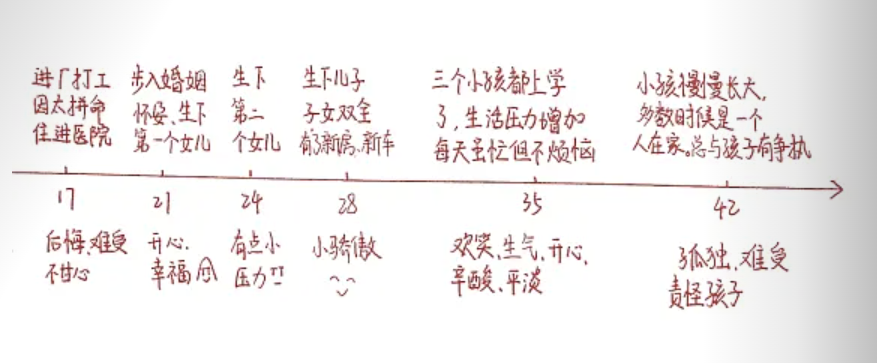 进厂打工
因太拼命
住进医院
步入婚姻
怀孕、生下
第一个女儿
生下
第二
个女儿
生下儿子
子女双全
有了新房、新车
三个小孩都上学
了,生活压力增加
每天虽忙但不烦恼
小孩慢慢长大,
多数时候是一个
人在家。总与孩子有争执
17
21
24
28
35
42
后悔、难受
不甘心
开心、
幸福
有点小
压力!!
小骄傲
欢笑、生气、开心、
辛酸、平淡
孤独、难受
责怪孩子